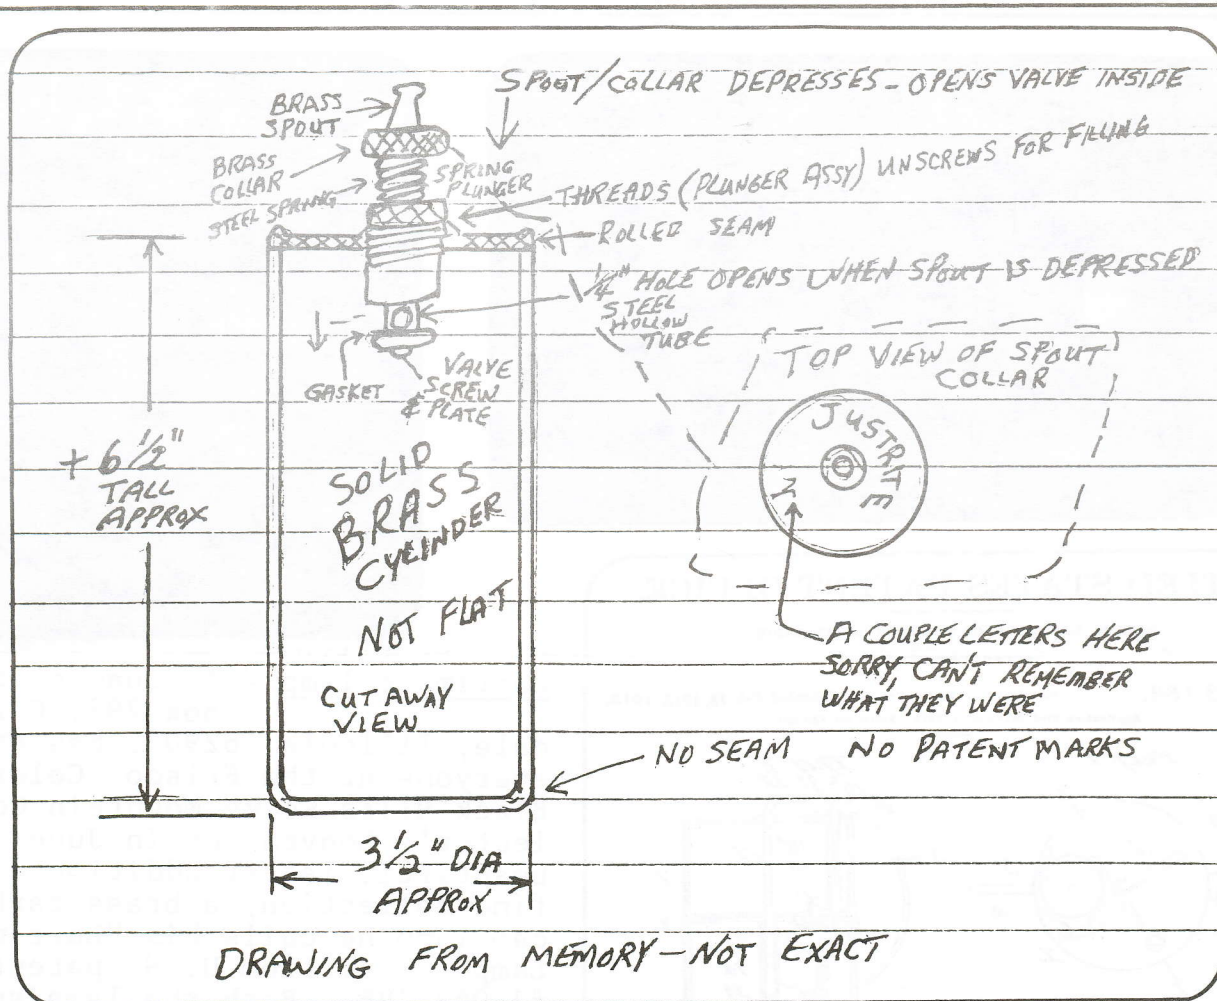 SPOUT/COLLAR DEPRESSES - OPENS VALVE INSIDE
BRASS
SPOUT
BRASS
COLLAR
STEEL SPRING
SPRING
PLUNGER
THREADS (PLUNGER ASSY) UNSCREWS FOR FILLING
ROLLED SEAM
1/4" HOLE OPENS WHEN SPOUT IS DEPRESSED
STEEL
HOLLOW
TUBE
GASKET
VALVE
SCREW
& PLATE
TOP VIEW OF SPOUT
COLLAR
JUSTRITE
+ 6 1/2"
TALL
APPROX
SOLID
BRASS
CYLINDER
NOT FLAT
CUT AWAY
VIEW
A COUPLE LETTERS HERE
SORRY, CAN'T REMEMBER
WHAT THEY WERE
NO SEAM NO PATENT MARKS
3 1/2" DIA
APPROX
DRAWING FROM MEMORY - NOT EXACT